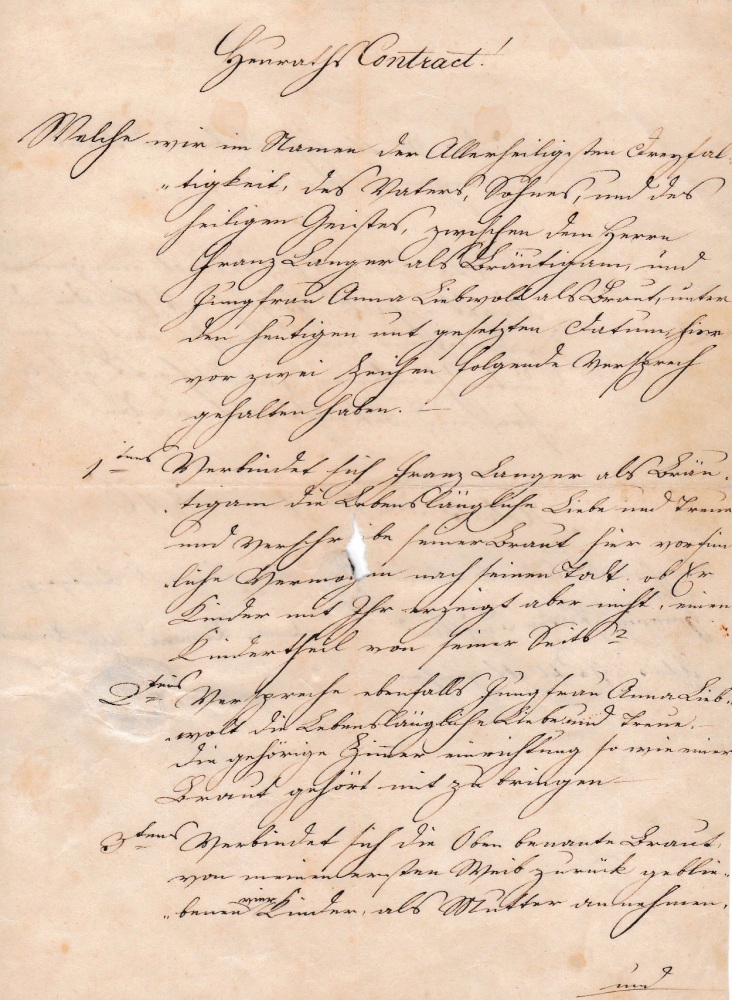 Heuraths Contract!
Welche wir im Namen der Allerheiligsten Dreyfal-
„tigkeit, des Vaters, Sohnes, und des
heiligen Geistes, zwischen dem Herrn
Franz Langer als Bräutigam, und
Jungfrau Anna Liebwolt als Braut, unter
den heutigen unt gesetzten Datum, hier
vor zwei Zeichen folgende Versprech
gehalten haben. —
1tens Verbindet sich Franz Langer als Bräu-
tigam die Lebenslängliche Liebe und Treue
und verschreibe seiner Braut hier
liche Vermogen nach seinen Todt. ob Er
Kinder mit Ihr erzeigt aber nicht, einen
Kindertheil von seiner Seits
2tens Verspreche ebenfalls Jungfrau Anna Lieb-
wolt die Lebenslängliche Liebe und Treue.
die gehörige Zimer einrichtung so wie einer
Braut gehört mit zu bringen —
3tens Verbindet sich die Oben benante Braut,
von meinen ersten Weib zurück geblie-
„benen vier Kinder, als Mutter annehmen,
und